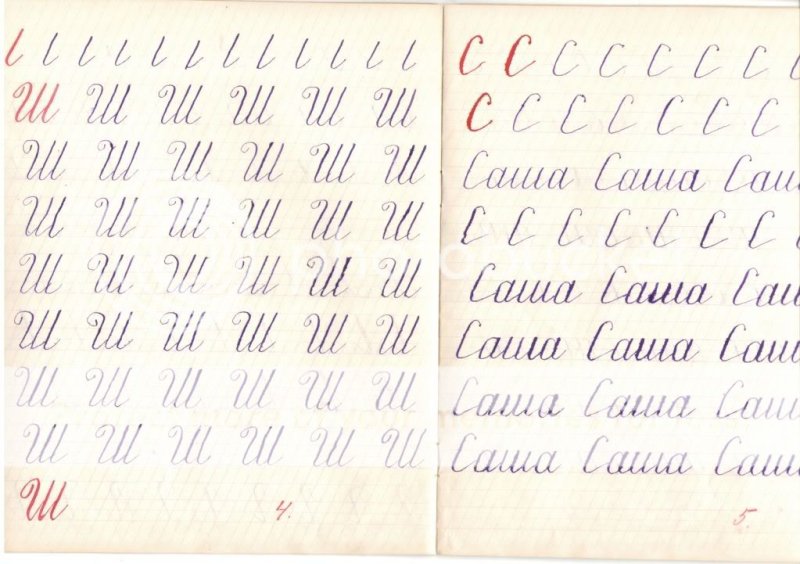 Ш Ш Ш Ш Ш Ш
Ш Ш Ш Ш Ш Ш
Ш Ш Ш Ш Ш Ш
Ш Ш Ш Ш Ш Ш
Ш Ш Ш Ш Ш Ш
Ш Ш Ш Ш Ш Ш
Ш Ш Ш Ш Ш Ш
Ш
4.
С С С С С С С С
С С С С С С С
Саша Саша Саш
С С С С С С С С
Саша Саша Саш
Саша Саша Саш
Саша Саша Саш
Саша Саша Саш
5.